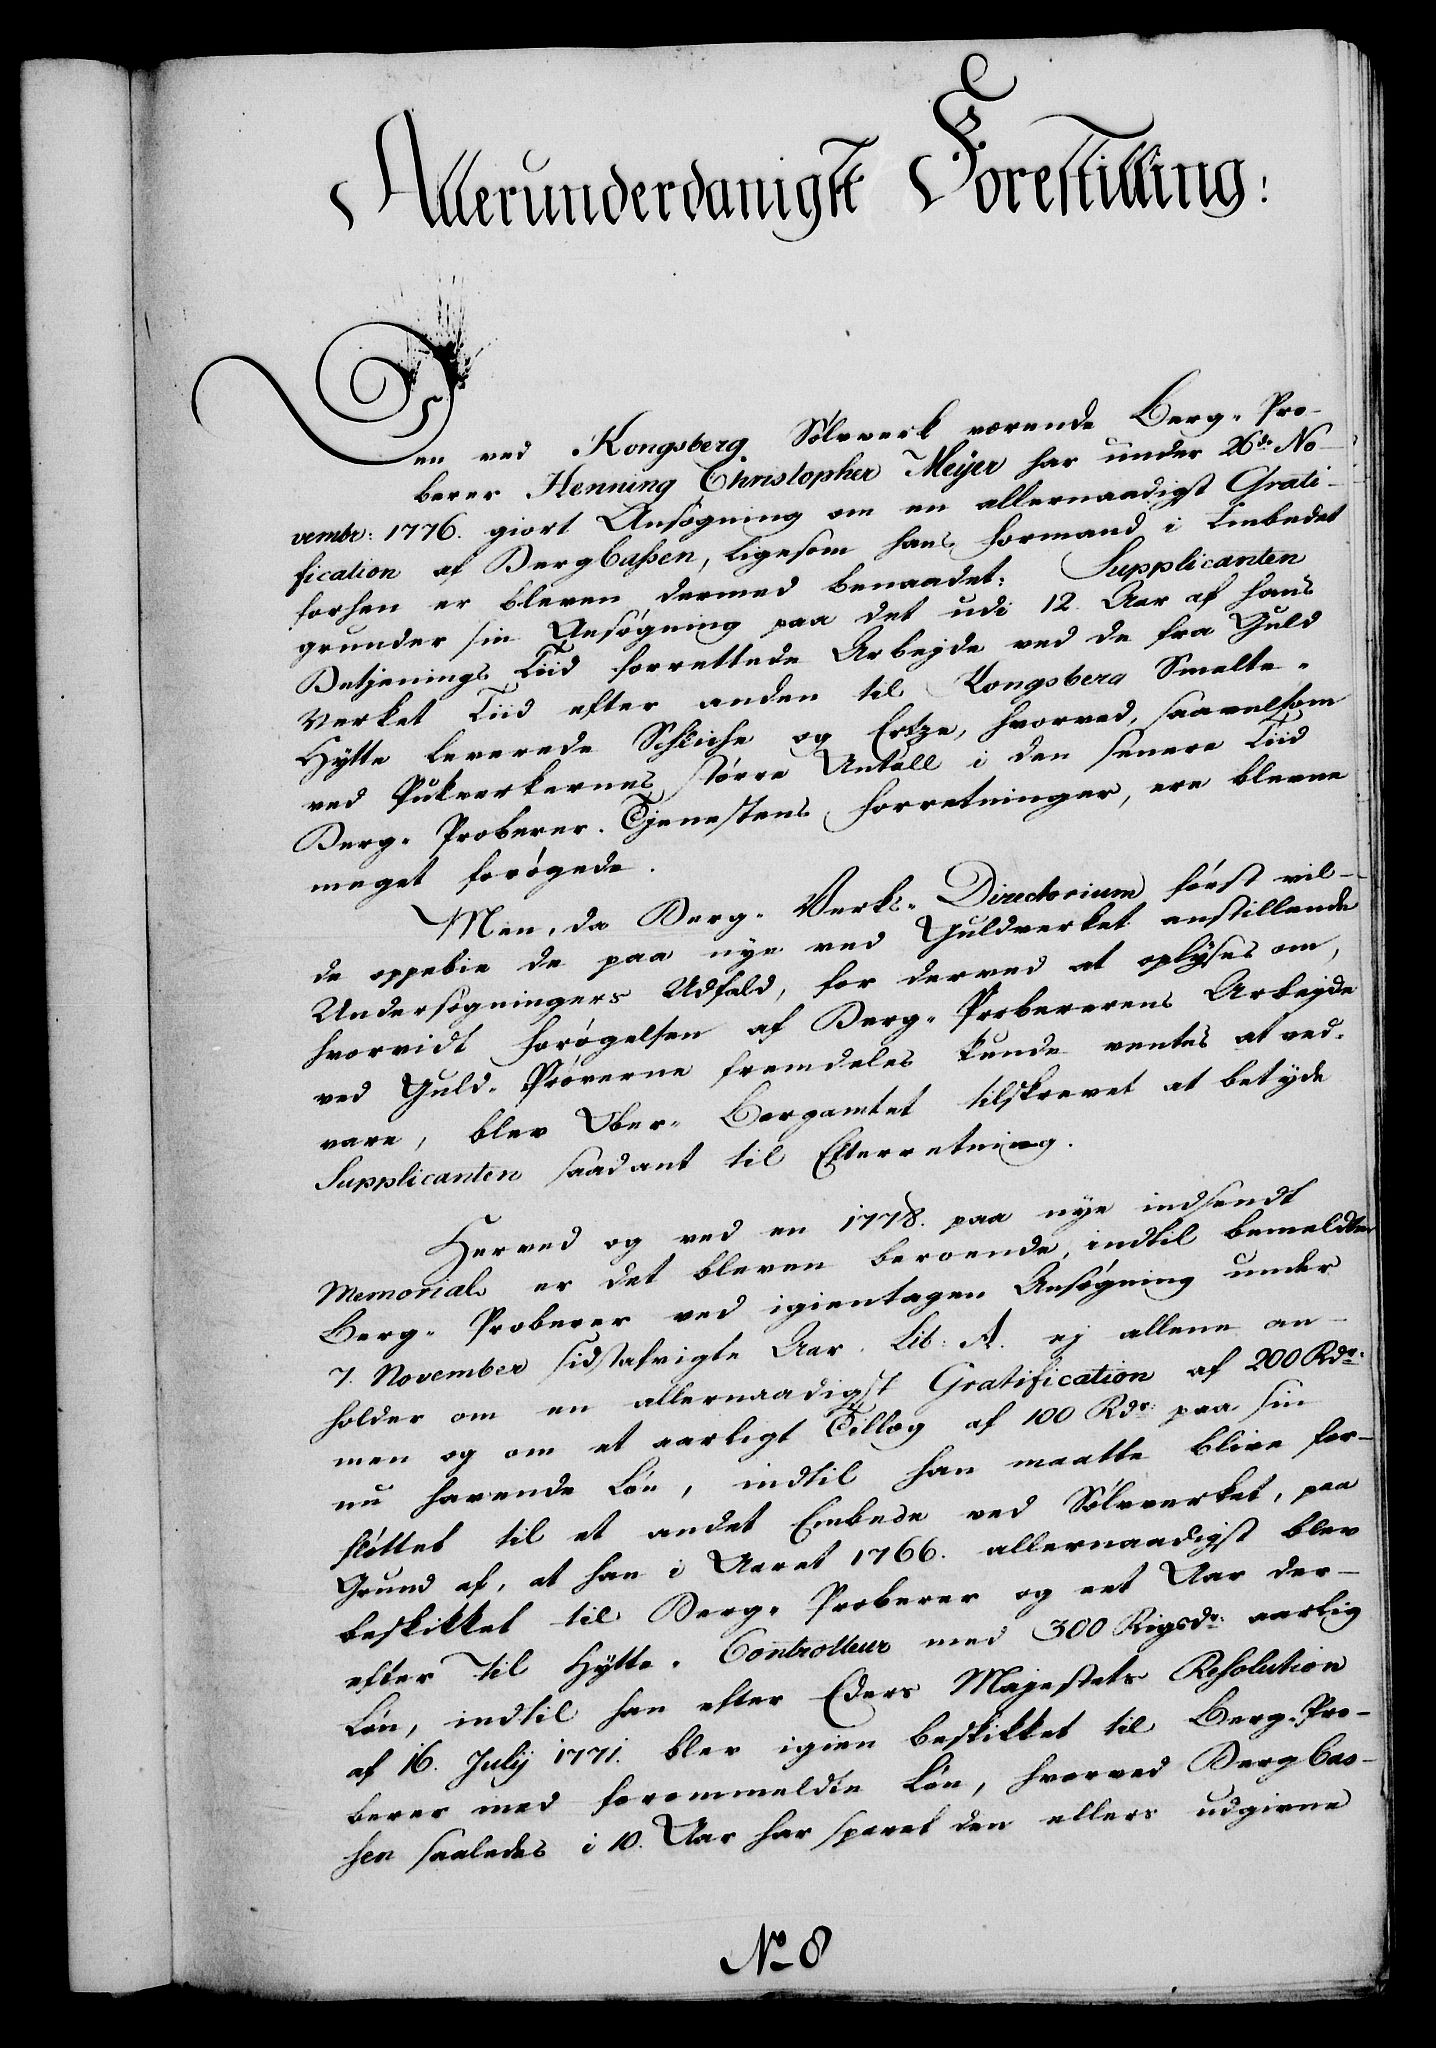 Allerunderdanigst Forestilling:
Den ved Kongsberg Sølvverk værende Berg-Pro-
berer Henning Christopher Meyer har under 26de No-
vembr: 1776. giort Ansøgning om en allernaadigst Grati-
fication af BergCassen, ligesom hans Formand i Embedet
forhen er bleven dermed benaadet. Supplicanten
grunder sin Ansøgning paa det udi 12 Aar af hans
Betjenings Tiid forrettede Arbejde ved de fra Guld
Verket Tiid efter anden til Kongsberg Smelte-
Hytte leverede Schliche og Ertze, hvorved, saavelsom
ved Pukverkernes større Antall i den senere Tiid
Berg-Proberer-Tjenestens Forretninger, ere blevne
meget forøgede.
Men, da Berg-Verks-Directorium først vil-
de oppebie de paa nye ved Guldverket anstillende
Undersøgningers Udfald, for derved at oplyses om,
hvorvidt Forøgelsen af Berg-Probererens Arbejde
ved Guld-Prøverne fremdeles kunde ventes at ved-
vare, blev Ober-Bergamtet tilskrevet at betyde
Supplicanten saadant til Efterretning.
Herved og ved en 1778. paa nye indsendt
Memorial er det bleven beroende, indtil bemeldte
Berg-Proberer ved igientagen Ansøgning under
7. November sidstafvigte Aar Lit: A. ej allene an-
holder om en allernaadigst Gratification af 200 Rdr:
men og om et aarligt Tillæg af 100 Rdr: paa sin
nu havende Løn, indtil han maatte blive for-
flöttet til et andet Embede ved Sølvverket, paa
Grund af, at han i Aaret 1766. allernaadigst blev
beskikket til Berg-Proberer og eet Aar der-
efter til Hytte-Controlleur med 300 Rigsdr: aarlig
Løn, indtil han efter Eders Majestets Resolution
af 16. Julij 1771. blev igien beskikket til Berg-Pro-
berer med forommeldte Løn, hvorved BergCas-
sen saaledes i 10. Aar har sparet den ellers udgivne
No 8